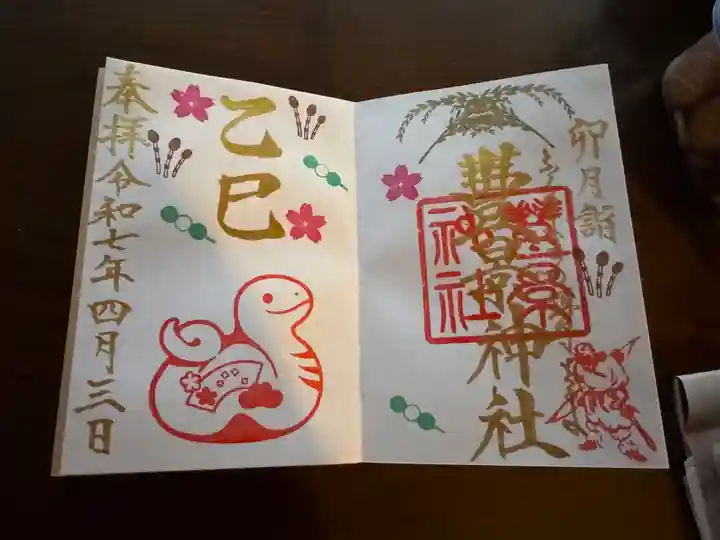 卯月詣
豊景神社
豊景神社
乙巳
奉拝令和七年四月三日